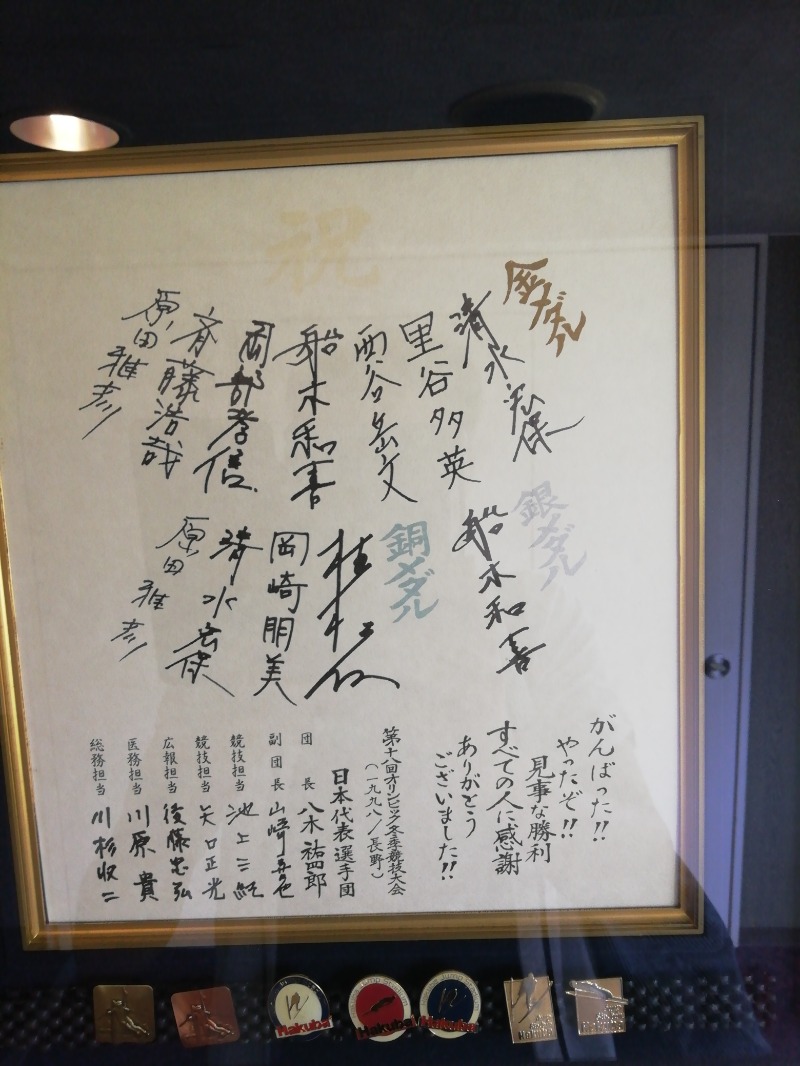 祝
金メダル
清水宏保
里谷多英
西谷岳文
船木和喜
岡部孝信
斉藤浩哉
原田雅彦
銀メダル
船木和喜
銅メダル
岡崎朋美
清水宏保
原田雅彦
がんばった!!
やったぞ!!
見事な勝利
すべての人に感謝
ありがとう
ございました!!
第十八回オリンピック冬季競技大会
(一九九八/長野)
日本代表選手団
団長 八木祐四郎
副団長 山崎
競技担当 池上三紀
競技担当 矢口正光
広報担当 後藤忠弘
医務担当 川原貴
総務担当 川杉収二
Hakuba
Hakuba
Hakuba
Hakuba
Hakuba